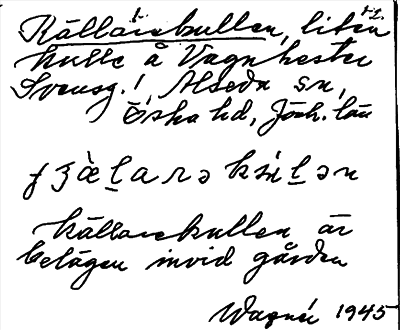 Källarekullen, liten
kulle å Vagnhester
Svensg.!, Alseda sn,
Östra hd, Jönk. län
källarekullen är
belägen invid gården
1945